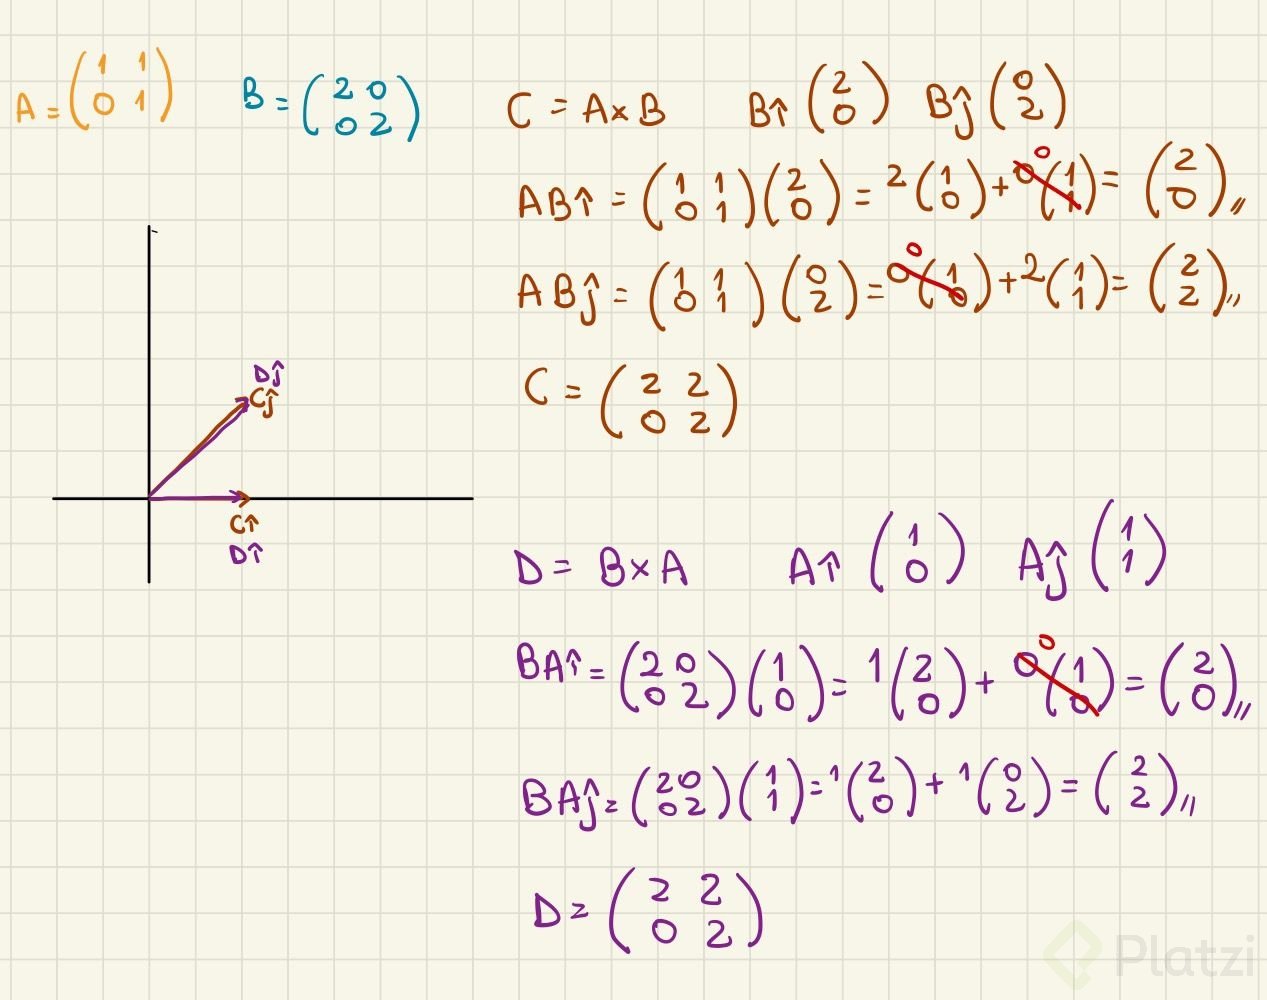 A = (1 1
0 1)
B = (2 0
0 2)
C = A x B
Bî (2
0)
Bĵ (0
2)
ABî = (1 1
0 1)(2
0) = 2(1
0) + 0(1
1) = (2
0)
0
ABĵ = (1 1
0 1)(0
2) = 0(1
0) + 2(1
1) = (2
2)
0
C = (2 2
0 2)
Dĵ
Cĵ
Cî
Dî
D = B x A
Aî (1
0)
Aĵ (1
1)
BAî = (2 0
0 2)(1
0) = 1(2
0) + 0(1
0) = (2
0)
0
BAĵ = (2 0
0 2)(1
1) = 1(2
0) + 1(0
2) = (2
2)
D = (2 2
0 2)
Platzi